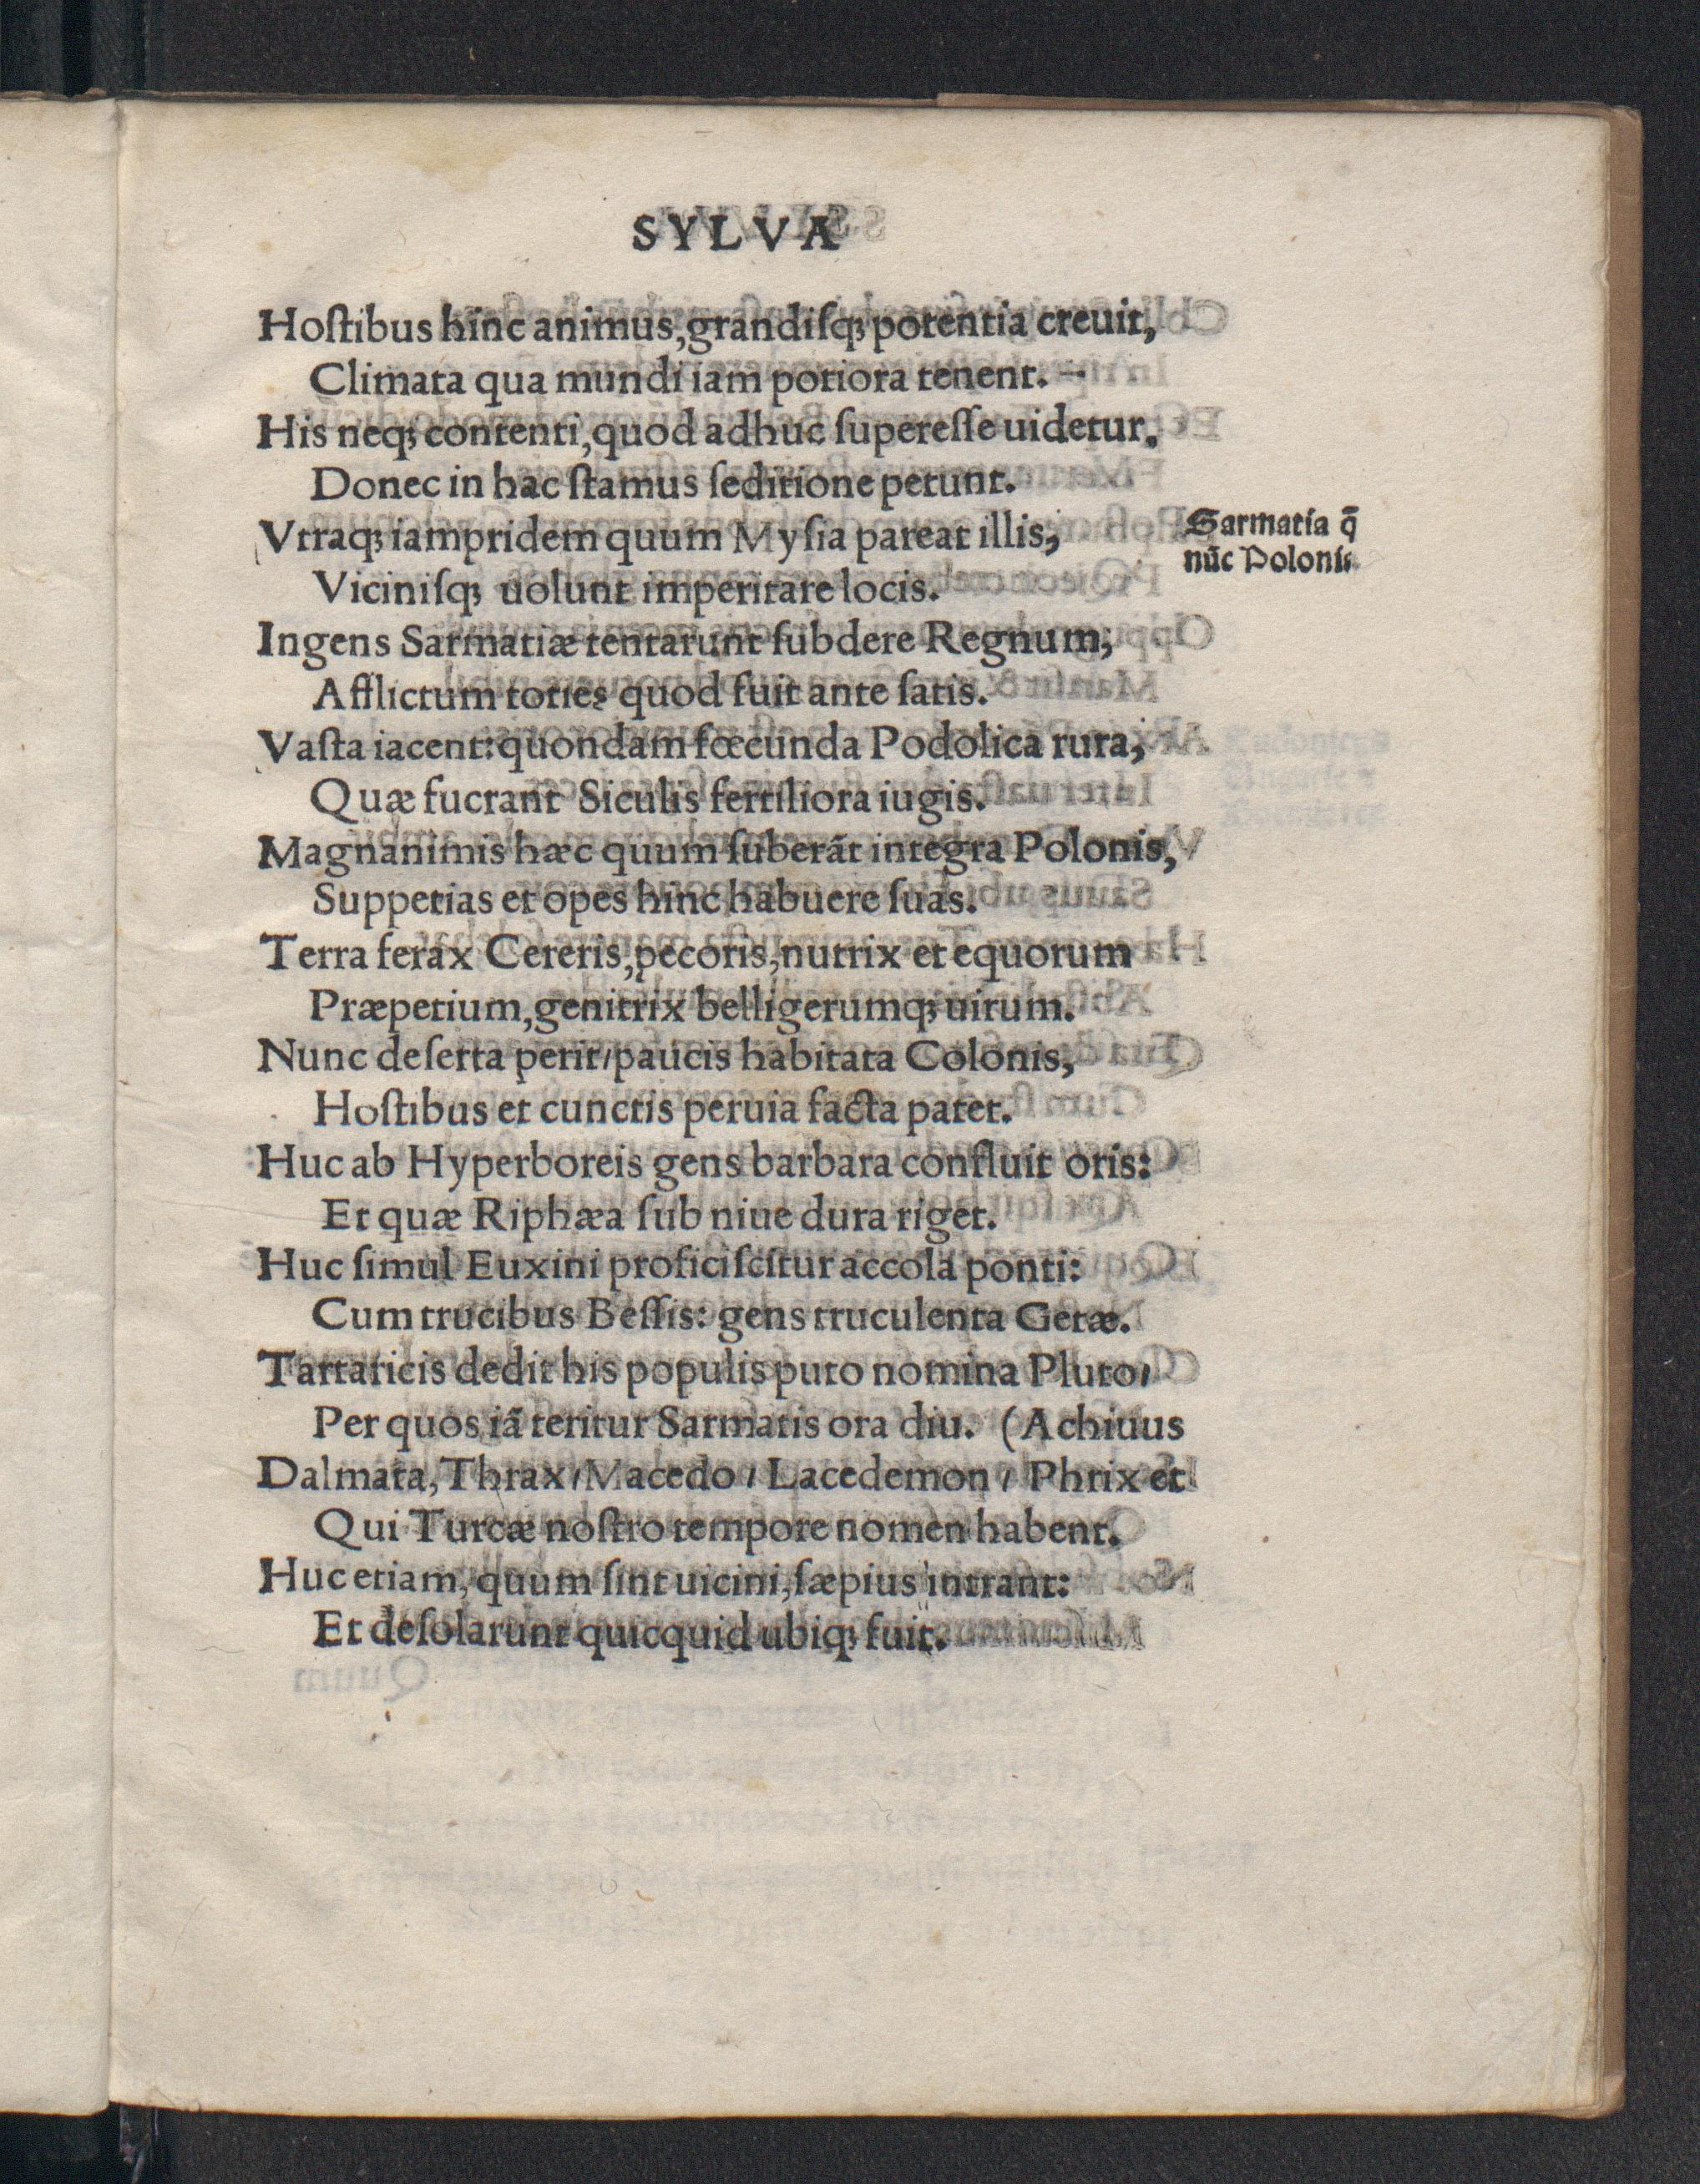 SYLVA
Hoſtibus hinc animus, grandiſqꝫ potentia creuit,
Climata qua mundi iam potiora tenent.
His neqꝫ contenti, quod adhuc ſupereſſe uidetur.
Donec in hac ſtamus ſeditione petunt.
Vtraqꝫ iampridem quum Myſia pareat illis,
Sarmatia q̄
nūc Poloni
Viciniſqꝫ uolunt imperitare locis.
Ingens Sarmatiæ tentarunt ſubdere Regnum,
Afflictum toties quod fuit ante ſatis.
Vaſta iacent: quondam fœcunda Podolica rura,
Quæ fucrant Siculis fertiliora iugis.
Magnanimis hæc quum ſuberāt integra Polonis,
Suppetias et opes hinc habuere ſuas.
Terra ferax Cereris, pecoris, nutrix et equorum
Præpetium, genitrix belligerumqꝫ uirum.
Nunc deſerta perit/ paucis habitata Colonis,
Hoſtibus et cunctis peruia facta patet.
Huc ab Hyperboreis gens barbara confluit oris:
Et quæ Riphæa ſub niue dura riget.
Huc ſimul Euxini proficiſcitur accola ponti:
Cum trucibus Beſſis: gens truculenta Getæ.
Tartaricis dedit his populis puto nomina Pluto/
Per quos iā teritur Sarmatis ora diu. (Achiuus
Dalmata, Thrax/ Macedo/ Lacedemon/ Phrix et
Qui Turcæ noſtro tempore nomen habent.
Huc etiam, quum ſint uicini, ſæpius intrant:
Et deſolarunt quicquid ubiqꝫ fuit.